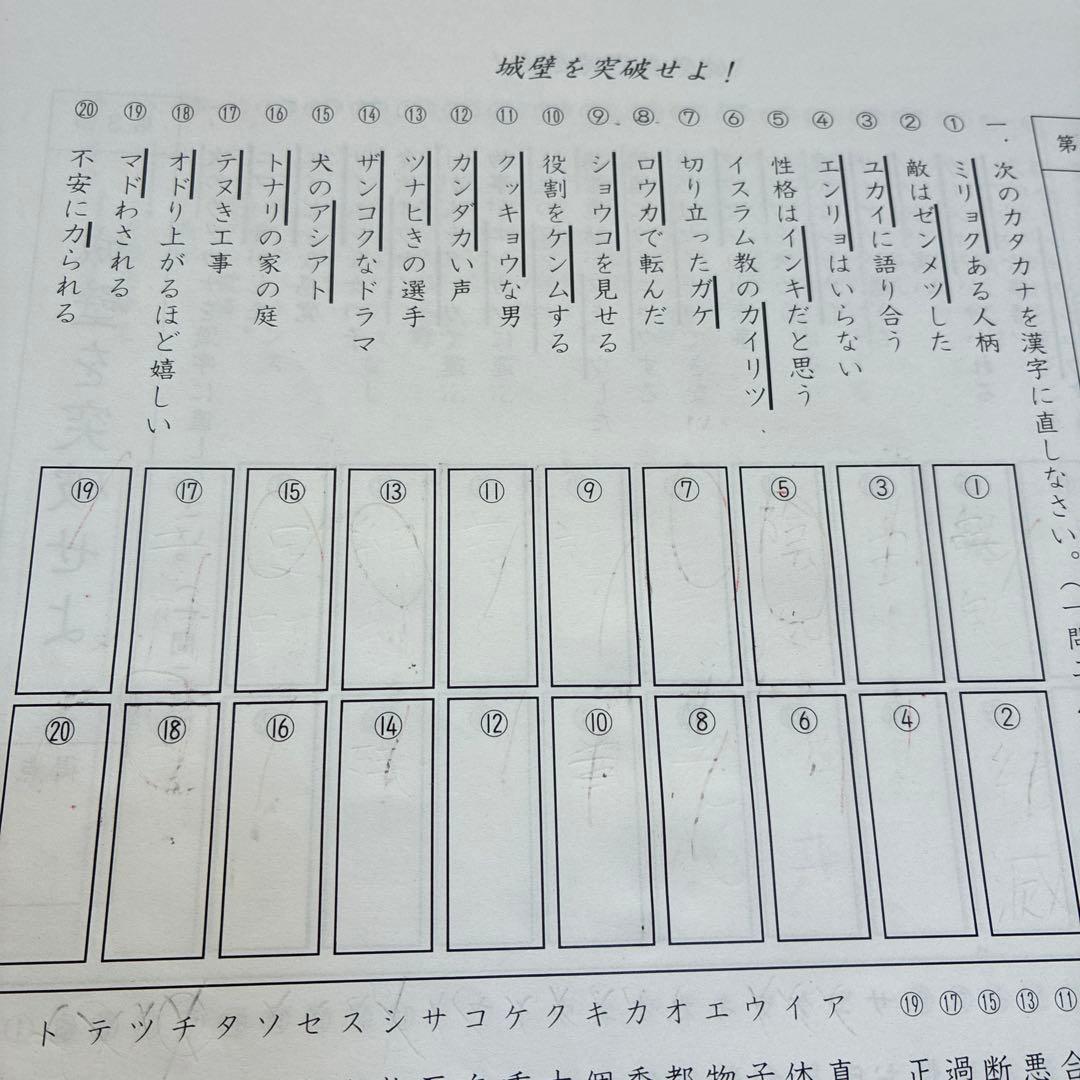 城壁を突破せよ！
第
一．次のカタカナを漢字に直しなさい。（一問
① ミリョクある人柄
② 敵はゼンメツした
③ ユカイに語り合う
④ エンリョはいらない
⑤ 性格はインキだと思う
⑥ イスラム教のカイリツ
⑦ 切り立ったガケ
⑧ ロウカで転んだ
⑨ ショウコを見せる
⑩ 役割をケンムする
⑪ クッキョウな男
⑫ カンダカい声
⑬ ツナヒきの選手
⑭ ザンコクなドラマ
⑮ 犬のアシアト
⑯ トナリの家の庭
⑰ テヌき工事
⑱ オドり上がるほど嬉しい
⑲ マドわされる
⑳ 不安にカられる
①
③
⑤
⑦
⑨
⑪
⑬
⑮
⑰
⑲
②
④
⑥
⑧
⑩
⑫
⑭
⑯
⑱
⑳
⑪ 合
⑬ 悪
⑮ 断
⑰ 過
⑲ 正
ア 直
イ 体
ウ 子
エ 物
オ 都
カ 香
キ 個
ク
ケ
コ
サ
シ
ス
セ
ソ
タ
チ
ツ
テ
ト